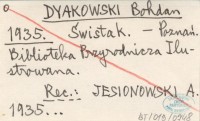 DYAKOWSKI Bohdan
1935. Świstak. – Poznań.
Biblioteka Przyrodnicza Ilu-
strowana.
Rec.: JESIONOWSKI A.
1935...